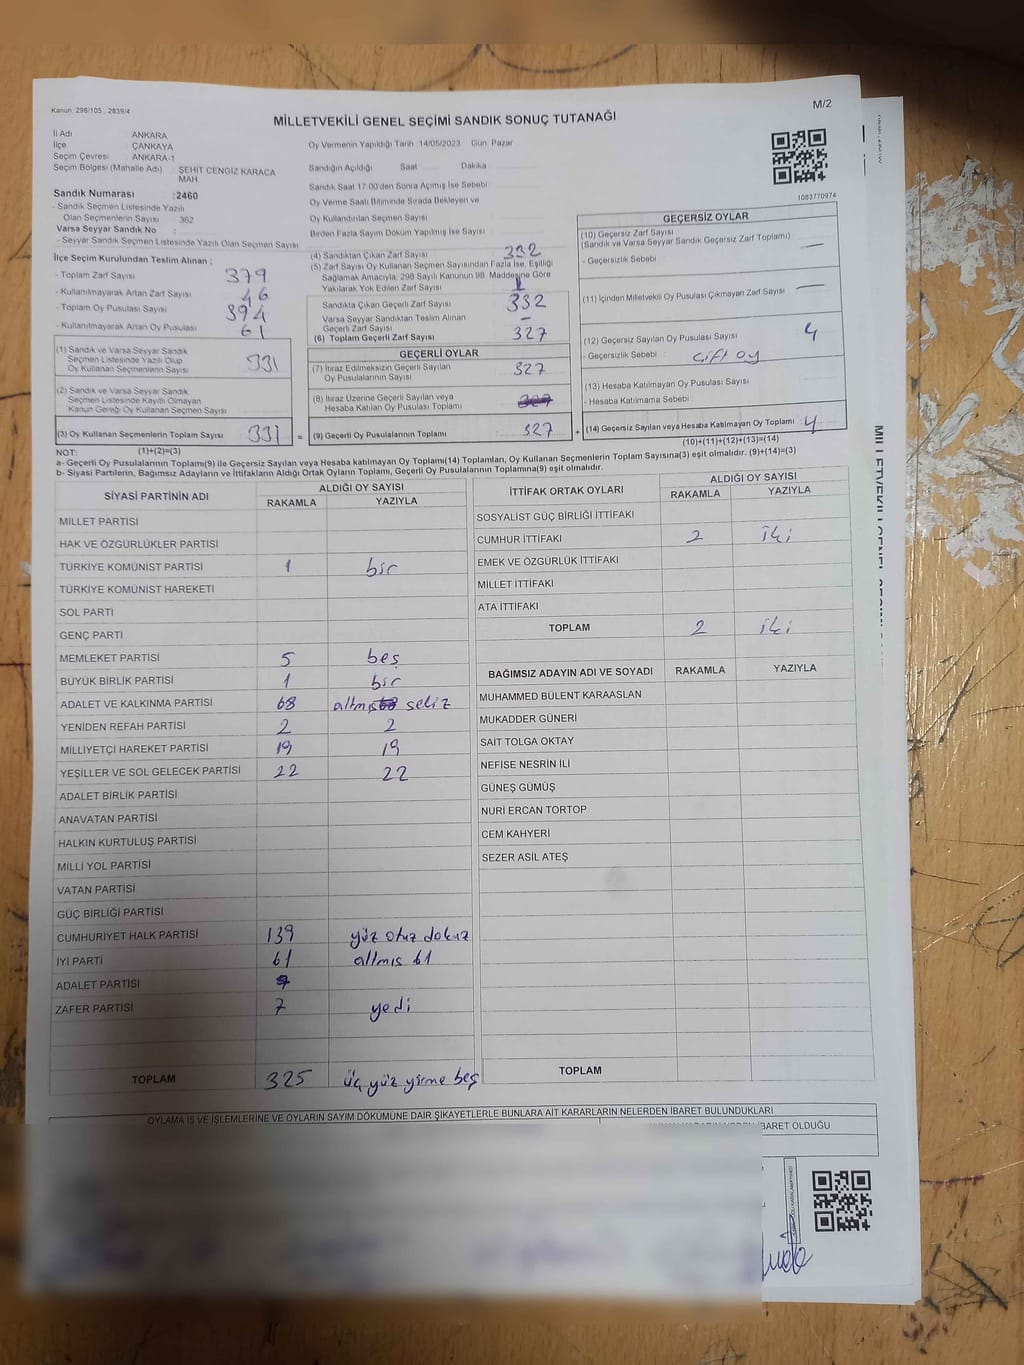 Kanun: 298/105 . 2839/4
M/2
MİLLETVEKİLİ GENEL SEÇİMİ SANDIK SONUÇ TUTANAĞI
İl Adı ANKARA
İlçe ÇANKAYA
Seçim Çevresi ANKARA-1
Seçim Bölgesi (Mahalle Adı) ŞEHİT CENGİZ KARACA MAH.
Sandık Numarası :2460
- Sandık Seçmen Listesinde Yazılı
Olan Seçmenlerin Sayısı : 362
Varsa Seyyar Sandık No :
- Seyyar Sandık Seçmen Listesinde Yazılı Olan Seçmen Sayısı
Oy Vermenin Yapıldığı Tarih :14/05/2023 Gün Pazar
Sandığın Açıldığı Saat Dakika
Sandık Saat 17:00'den Sonra Açılmış İse Sebebi
Oy Verme Saati Bitiminde Sırada Bekleyen ve
Oy Kullandırılan Seçmen Sayısı
Birden Fazla Sayım Döküm Yapılmış İse Sayısı
1083770974
İlçe Seçim Kurulundan Teslim Alınan :
- Toplam Zarf Sayısı 379
- Kullanılmayarak Artan Zarf Sayısı 46
- Toplam Oy Pusulası Sayısı 394
- Kullanılmayarak Artan Oy Pusulası 61
(1) Sandık ve Varsa Seyyar Sandık
Seçmen Listesinde Yazılı Olup
Oy Kullanan Seçmenlerin Sayısı 331
(2) Sandık ve Varsa Seyyar Sandık
Seçmen Listesinde Kayıtlı Olmayan
Kanun Gereği Oy Kullanan Seçmen Sayısı
(3) Oy Kullanan Seçmenlerin Toplam Sayısı 331 =
(4) Sandıktan Çıkan Zarf Sayısı 332
(5) Zarf Sayısı Oy Kullanan Seçmen Sayısından Fazla İse, Eşitliği
Sağlamak Amacıyla, 298 Sayılı Kanunun 98. Maddesine Göre
Yakılarak Yok Edilen Zarf Sayısı 1
Sandıkta Çıkan Geçerli Zarf Sayısı 332
Varsa Seyyar Sandıktan Teslim Alınan
Geçerli Zarf Sayısı –
(6) Toplam Geçerli Zarf Sayısı 327
GEÇERLİ OYLAR
(7) İtiraz Edilmeksizin Geçerli Sayılan
Oy Pusulalarının Sayısı 327
(8) İtiraz Üzerine Geçerli Sayılan veya
Hesaba Katılan Oy Pusulası Toplamı
(9) Geçerli Oy Pusulalarının Toplamı 327 +
GEÇERSİZ OYLAR
(10) Geçersiz Zarf Sayısı
(Sandık ve Varsa Seyyar Sandık Geçersiz Zarf Toplamı) —
- Geçersizlik Sebebi
(11) İçinden Milletvekili Oy Pusulası Çıkmayan Zarf Sayısı —
(12) Geçersiz Sayılan Oy Pusulası Sayısı 4
- Geçersizlik Sebebi : çift oy
(13) Hesaba Katılmayan Oy Pusulası Sayısı
- Hesaba Katılmama Sebebi
(14) Geçersiz Sayılan veya Hesaba Katılmayan Oy Toplamı 4
NOT: (1)+(2)=(3)
(10)+(11)+(12)+(13)=(14)
a- Geçerli Oy Pusulalarının Toplamı(9) ile Geçersiz Sayılan veya Hesaba katılmayan Oy Toplamı(14) Toplamları, Oy Kullanan Seçmenlerin Toplam Sayısına(3) eşit olmalıdır. (9)+(14)=(3)
b- Siyasi Partilerin, Bağımsız Adayların ve İttifakların Aldığı Ortak Oyların Toplamı, Geçerli Oy Pusulalarının Toplamına(9) eşit olmalıdır.
SİYASİ PARTİNİN ADI ALDIĞI OY SAYISI
RAKAMLA YAZIYLA
MİLLET PARTİSİ
HAK VE ÖZGÜRLÜKLER PARTİSİ
TÜRKİYE KOMÜNİST PARTİSİ 1 bir
TÜRKİYE KOMÜNİST HAREKETİ
SOL PARTİ
GENÇ PARTİ
MEMLEKET PARTİSİ 5 beş
BÜYÜK BİRLİK PARTİSİ 1 bir
ADALET VE KALKINMA PARTİSİ 68 altmış sekiz
YENİDEN REFAH PARTİSİ 2 2
MİLLİYETÇİ HAREKET PARTİSİ 19 19
YEŞİLLER VE SOL GELECEK PARTİSİ 22 22
ADALET BİRLİK PARTİSİ
ANAVATAN PARTİSİ
HALKIN KURTULUŞ PARTİSİ
MİLLİ YOL PARTİSİ
VATAN PARTİSİ
GÜÇ BİRLİĞİ PARTİSİ
CUMHURİYET HALK PARTİSİ 139 yüz otuz dokuz
İYİ PARTİ 61 altmış 61
ADALET PARTİSİ
ZAFER PARTİSİ 7 yedi
TOPLAM 325 üç yüz yirme beş
İTTİFAK ORTAK OYLARI ALDIĞI OY SAYISI
RAKAMLA YAZIYLA
SOSYALİST GÜÇ BİRLİĞİ İTTİFAKI
CUMHUR İTTİFAKI 2 iki
EMEK VE ÖZGÜRLÜK İTTİFAKI
MİLLET İTTİFAKI
ATA İTTİFAKI
TOPLAM 2 iki
BAĞIMSIZ ADAYIN ADI VE SOYADI RAKAMLA YAZIYLA
MUHAMMED BÜLENT KARAASLAN
MUKADDER GÜNERİ
SAİT TOLGA OKTAY
NEFİSE NESRİN İLİ
GÜNEŞ GÜMÜŞ
NURİ ERCAN TORTOP
CEM KAHYERİ
SEZER ASİL ATEŞ
TOPLAM
OYLAMA İŞ VE İŞLEMLERİNE VE OYLARIN SAYIM DÖKÜMÜNE DAİR ŞİKAYETLERLE BUNLARA AİT KARARLARIN NELERDEN İBARET BULUNDUKLARI
İBARET OLDUĞU